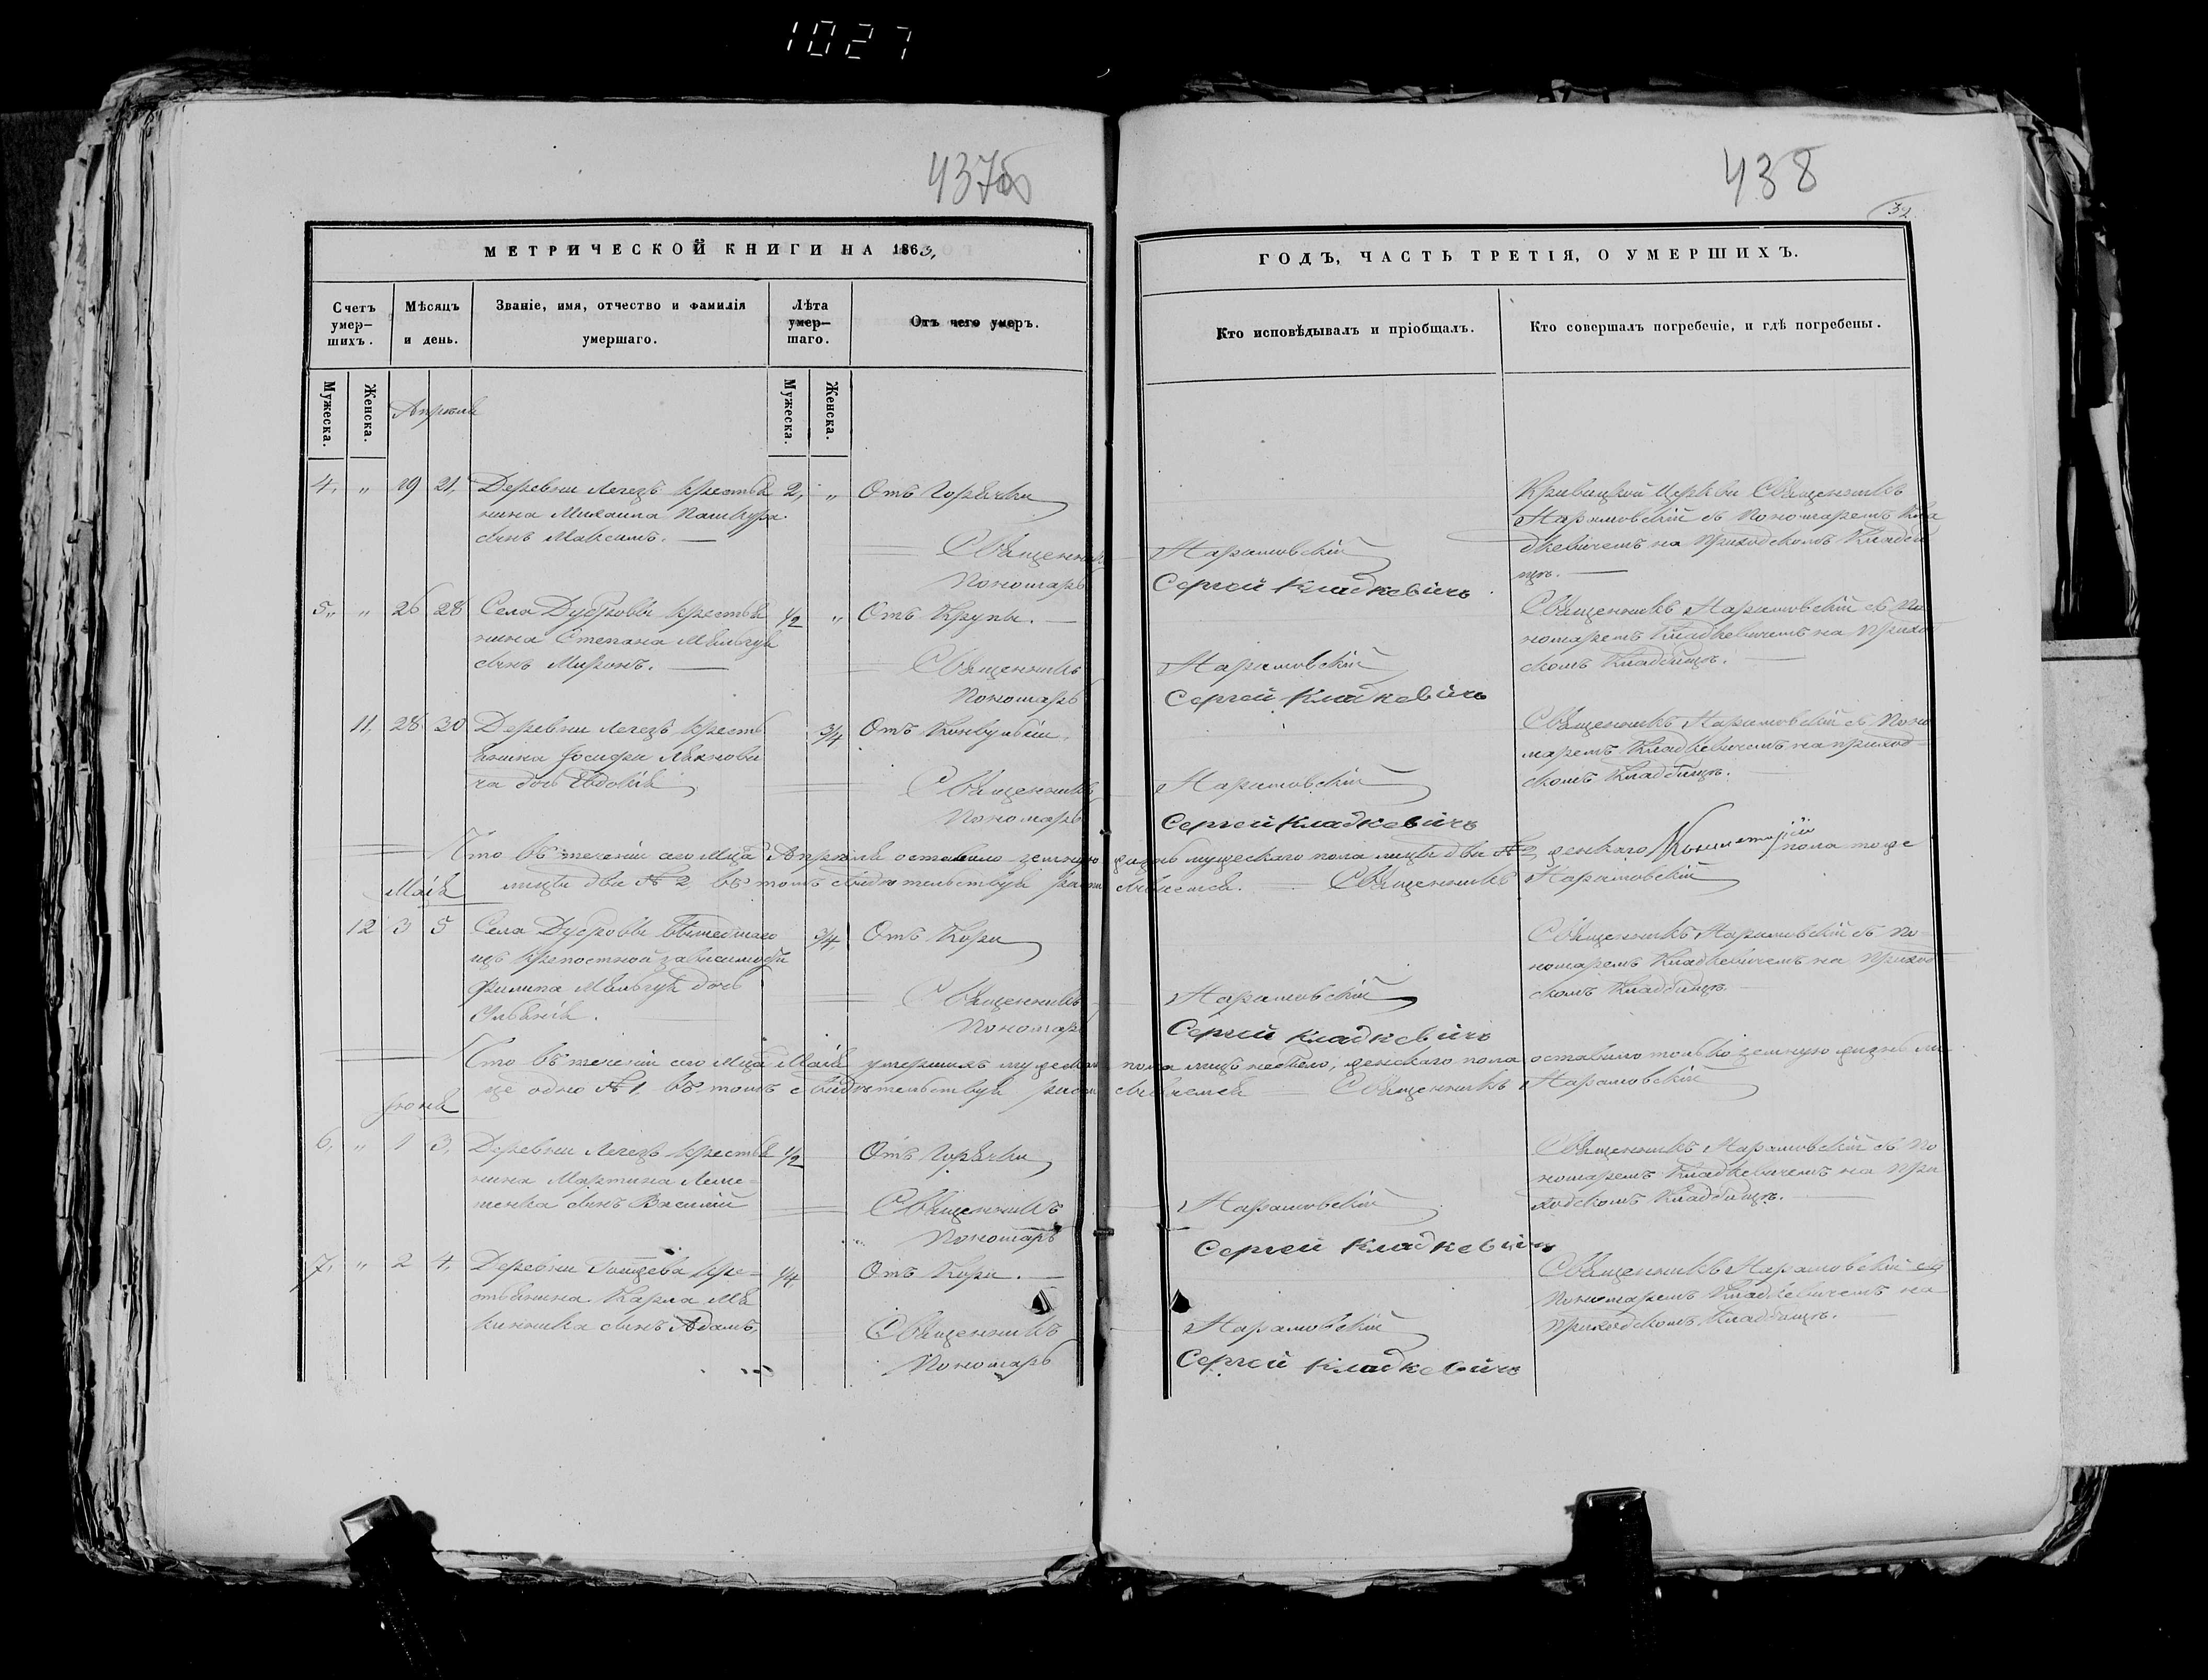 1027
437об
438
32
МЕТРИЧЕСКОЙ КНИГИ НА 1863,
ГОДЪ, ЧАСТЬ ТРЕТІЯ, О УМЕРШИХЪ.
Счетъ умер-
шихъ.
Мѣсяцъ
и день.
Званіе, имя, отчество и фамилія
умершаго.
Лѣта
умер-
шаго.
Отъ чего умеръ.
Кто исповѣдывалъ и пріобщалъ.
Кто совершалъ погребеніе, и гдѣ погребены.
Мужеска.
Женска.
Мужеска.
Женска.
Апрѣля
4, " 19 21, Деревни Легезъ крестья 2, " Отъ Горячки
нина Михаила
сынъ Максимъ.
Священникъ Нарановскій
Пономарь Сергей Кладкевичъ
Кривицкой Церкви Священникъ
Нарановскій съ Пономаремъ Кла
дкевичемъ на Приходскомъ Кладби
щѣ.
5, " 26 28 Села Дубровы крестья 1/2 " Отъ Крупы.
нина Степана
сынъ Миронъ.
Священникъ Нарановскій
Пономарь Сергей Кладкевичъ
Священникъ Нарановскій съ По
номаремъ Кладкевичемъ на Приход
скомъ Кладбищѣ.
11, 28 30 Деревни Легезъ кресть 3/4 Отъ Конвульсіи.
янина Іосифа
дочь Евдокія
Священникъ Нарановскій
Пономарь Сергей Кладкевичъ
Священникъ Нарановскій съ Поно
маремъ Кладкевичемъ на приход
скомъ Кладбищѣ.
Что въ теченіи сего Мца Апрѣля оставило земную жизнь мужескаго пола лицъ два № 2, женскаго пола тоже
лицъ два № 2, въ томъ свидѣтельствуя росписываемся. Священникъ Нарановскій
Маія
12 3 5 Села Дубровы вышедшаго 3/4, Отъ Кори
изъ крепостной зависимости
Филипа дочь
Ульянія.
Священникъ Нарановскій
Пономарь Сергей Кладкевичъ
Священникъ Нарановскій съ По
номаремъ Кладкевичемъ на Приход
скомъ Кладбищѣ
Что въ теченіи сего Мца Маія умершихъ мужеска пола лицъ небыло, женскаго пола оставило только земную жизнь ли
це одно № 1, въ томъ свидѣтельствуя росписываемся Священникъ Нарановскій
Іюня
6, " 1 3, Деревни Легезъ крестья 1/2 Отъ Горячки
нина Мартина Леме-
шенка сынъ Василій
Священникъ Нарановскій
Пономарь Сергей Кладкевичъ
Священникъ Нарановскій съ По
номаремъ Кладкевичемъ на При
ходскомъ Кладбищѣ.
7, " 2 4, Деревни кре= 1/4 Отъ Кори.
стьянина Карла
сынъ Адамъ,
Священникъ Нарановскій
Пономарь Сергей Кладкевичъ
Священникъ Нарановскій съ
Пономаремъ Кладкевичемъ на
Приходскомъ Кладбищѣ.